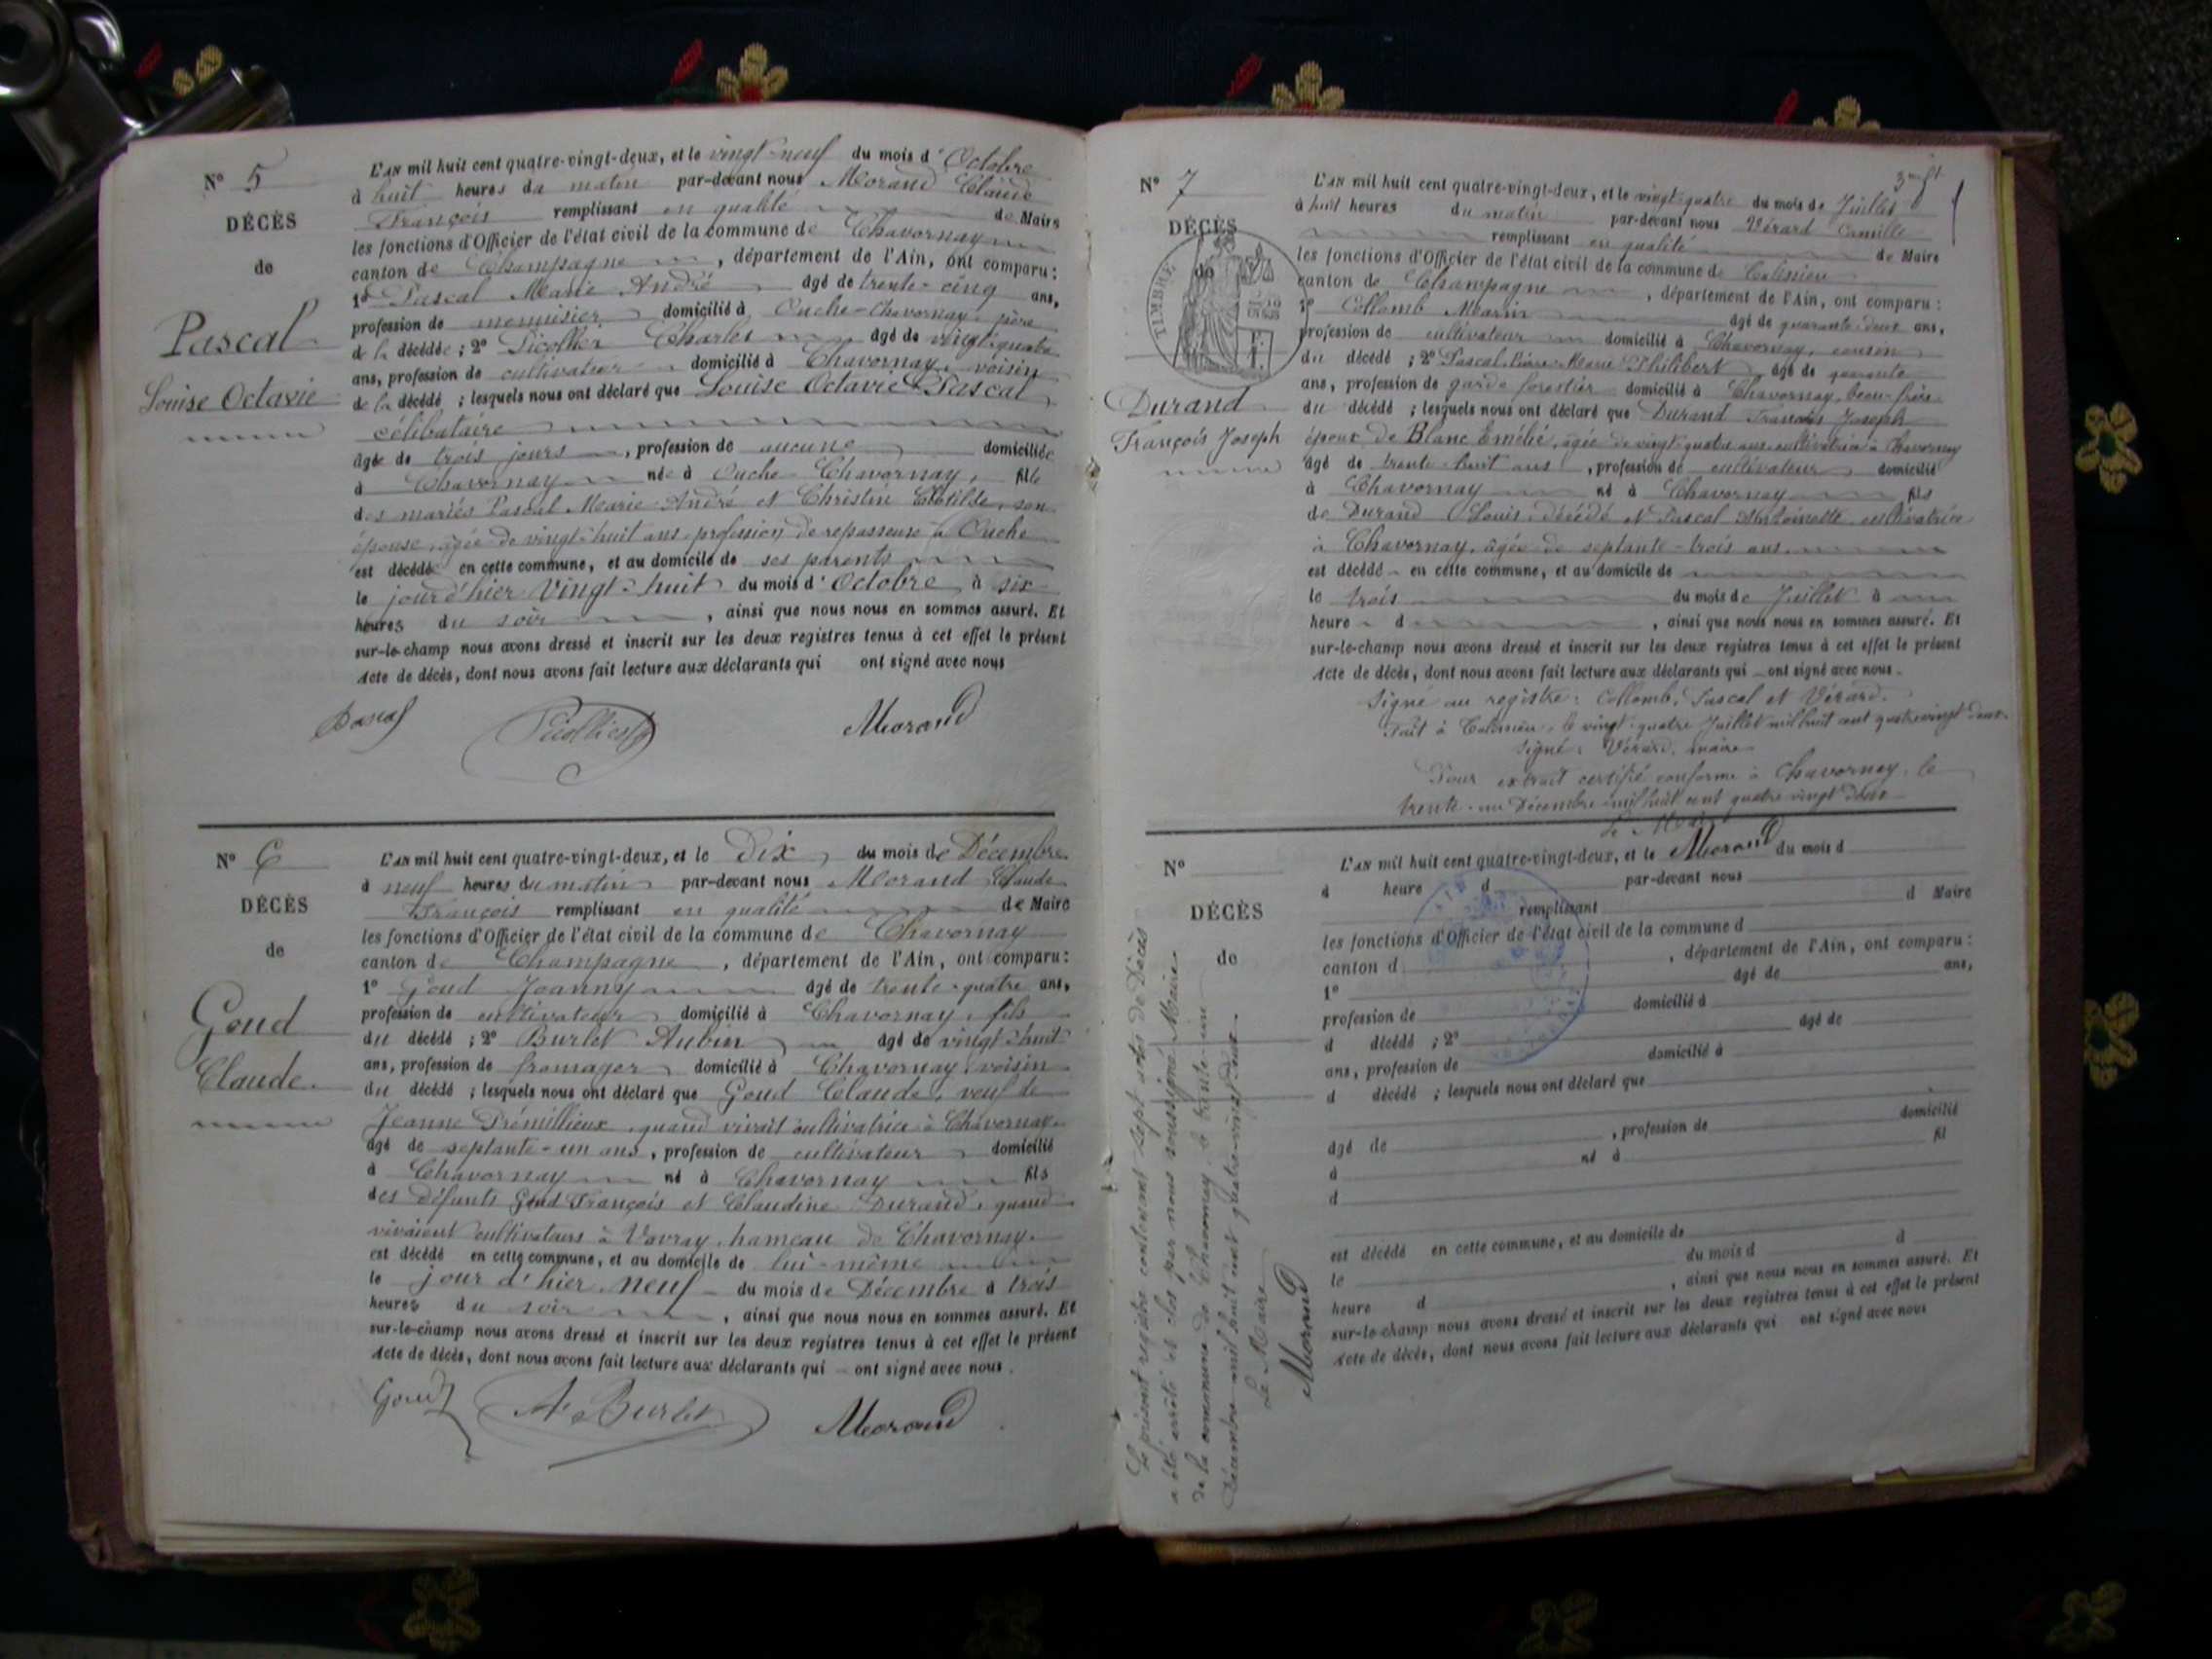 N° 5
DÉCÈS
de
Pascal
Louise Octavie
L'AN mil huit cent quatre-vingt-deux, et le vingt-neuf du mois d'Octobre
à huit heures du matin par-devant nous Morand Claude
François remplissant en qualité de Maire
les fonctions d'Officier de l'état civil de la commune de Chavornay
canton de Champagne, département de l'Ain, ont comparu :
1° Pascal Marie André âgé de trente-cinq ans,
profession de menuisier domicilié à Ouche-Chavornay, père
de la décédée ; 2° Picollier Charles âgé de vingt-quatre
ans, profession de cultivateur domicilié à Chavornay, voisin
de la décédé ; lesquels nous ont déclaré que Louise Octavie Pascal
célibataire
âgée de trois jours, profession de aucune domiciliée
à Chavornay née à Ouche Chavornay, fille
des mariés Pascal Marie-André et Christin Clotilde, son
épouse, âgée de vingt-huit ans, profession de repasseuse à Ouche
est décédée en cette commune, et au domicile de ses parents
le jour d'hier vingt-huit du mois d'Octobre à six
heures du soir, ainsi que nous nous en sommes assuré. Et
sur-le-champ nous avons dressé et inscrit sur les deux registres tenus à cet effet le présent
Acte de décès, dont nous avons fait lecture aux déclarants qui ont signé avec nous
Pascal Picollier Morand
N° 6
DÉCÈS
de
Goud
Claude
L'AN mil huit cent quatre-vingt-deux, et le Dix du mois de Décembre
à neuf heures du matin par-devant nous Morand Claude
François remplissant en qualité de Maire
les fonctions d'Officier de l'état civil de la commune de Chavornay
canton de Champagne, département de l'Ain, ont comparu :
1° Goud Joanny âgé de trente-quatre ans,
profession de cultivateur domicilié à Chavornay, fils
du décédé ; 2° Burlet Aubin âgé de vingt-huit
ans, profession de fromager domicilié à Chavornay voisin
du décédé ; lesquels nous ont déclaré que Goud Claude, veuf de
Jeanne Prémillieux, quand vivait cultivatrice à Chavornay
âgé de septante-un ans, profession de cultivateur domicilié
à Chavornay né à Chavornay fils
des défunts Goud François et Claudine Durand, quand
vivaient cultivateurs à Vavray, hameau de Chavornay
est décédé en cette commune, et au domicile de lui-même
le jour d'hier neuf du mois de Décembre à trois
heures du soir, ainsi que nous nous en sommes assuré. Et
sur-le-champ nous avons dressé et inscrit sur les deux registres tenus à cet effet le présent
Acte de décès, dont nous avons fait lecture aux déclarants qui ont signé avec nous.
Goud A. Burlet Morand
N° 7
DÉCÈS
de
TIMBRE
Durand
François Joseph
L'AN mil huit cent quatre-vingt-deux, et le vingt-quatre du mois de Juillet
à huit heures du matin par-devant nous Vérard Camille
remplissant en qualité de Maire
les fonctions d'Officier de l'état civil de la commune de Talissieu
canton de Champagne, département de l'Ain, ont comparu :
1° Collomb Marin âgé de quarante-deux ans,
profession de cultivateur domicilié à Chavornay, cousin
du décédé ; 2° Pascal Pierre-Marie Philibert âgé de quarante
ans, profession de garde forestier domicilié à Chavornay, beau-frère
du décédé ; lesquels nous ont déclaré que Durand François Joseph
époux de Blanc Emélie, âgée de vingt-quatre ans, cultivatrice à Chavornay
âgé de trente-huit ans, profession de cultivateur domicilié
à Chavornay né à Chavornay fils
de Durand Louis, décédé et Pascal Antoinette, cultivatrice
à Chavornay, âgée de septante-trois ans.
est décédé en cette commune, et au domicile de
le trois du mois de Juillet à
heure d, ainsi que nous nous en sommes assuré. Et
sur-le-champ nous avons dressé et inscrit sur les deux registres tenus à cet effet le présent
Acte de décès, dont nous avons fait lecture aux déclarants qui ont signé avec nous.
Signé au registre : Collomb, Pascal et Vérard.
Fait à Talissieu, le vingt-quatre Juillet mil huit cent quatre-vingt-deux.
Signé : Vérard, maire
Pour extrait certifié conforme à Chavornay, le
trente-un Décembre mil huit cent quatre-vingt-deux
Le Maire
Morand
N°
DÉCÈS
de
L'AN mil huit cent quatre-vingt-deux, et le du mois d
à heure d par-devant nous
remplissant d Maire
les fonctions d'Officier de l'état civil de la commune d
canton d, département de l'Ain, ont comparu :
1° âgé de ans,
profession de domicilié à
d décédé ; 2° âgé de
ans, profession de domicilié à
d décédé ; lesquels nous ont déclaré que
âgé de, profession de domicilié
à né à fil
d
est décédé en cette commune, et au domicile de
le du mois d à
heure d, ainsi que nous nous en sommes assuré. Et
sur-le-champ nous avons dressé et inscrit sur les deux registres tenus à cet effet le présent
Acte de décès, dont nous avons fait lecture aux déclarants qui ont signé avec nous
Le présent registre contenant sept actes de Décès
a été arrêté et clos par nous soussigné Maire
de la commune de Chavornay, le trente-un
Décembre mil huit cent quatre-vingt-deux.
Le Maire
Morand